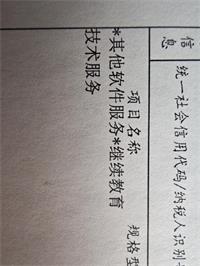 信
息
统一社会信用代码/纳税人识别
项目名称
规格型
*其他软件服务*继续教育
技术服务